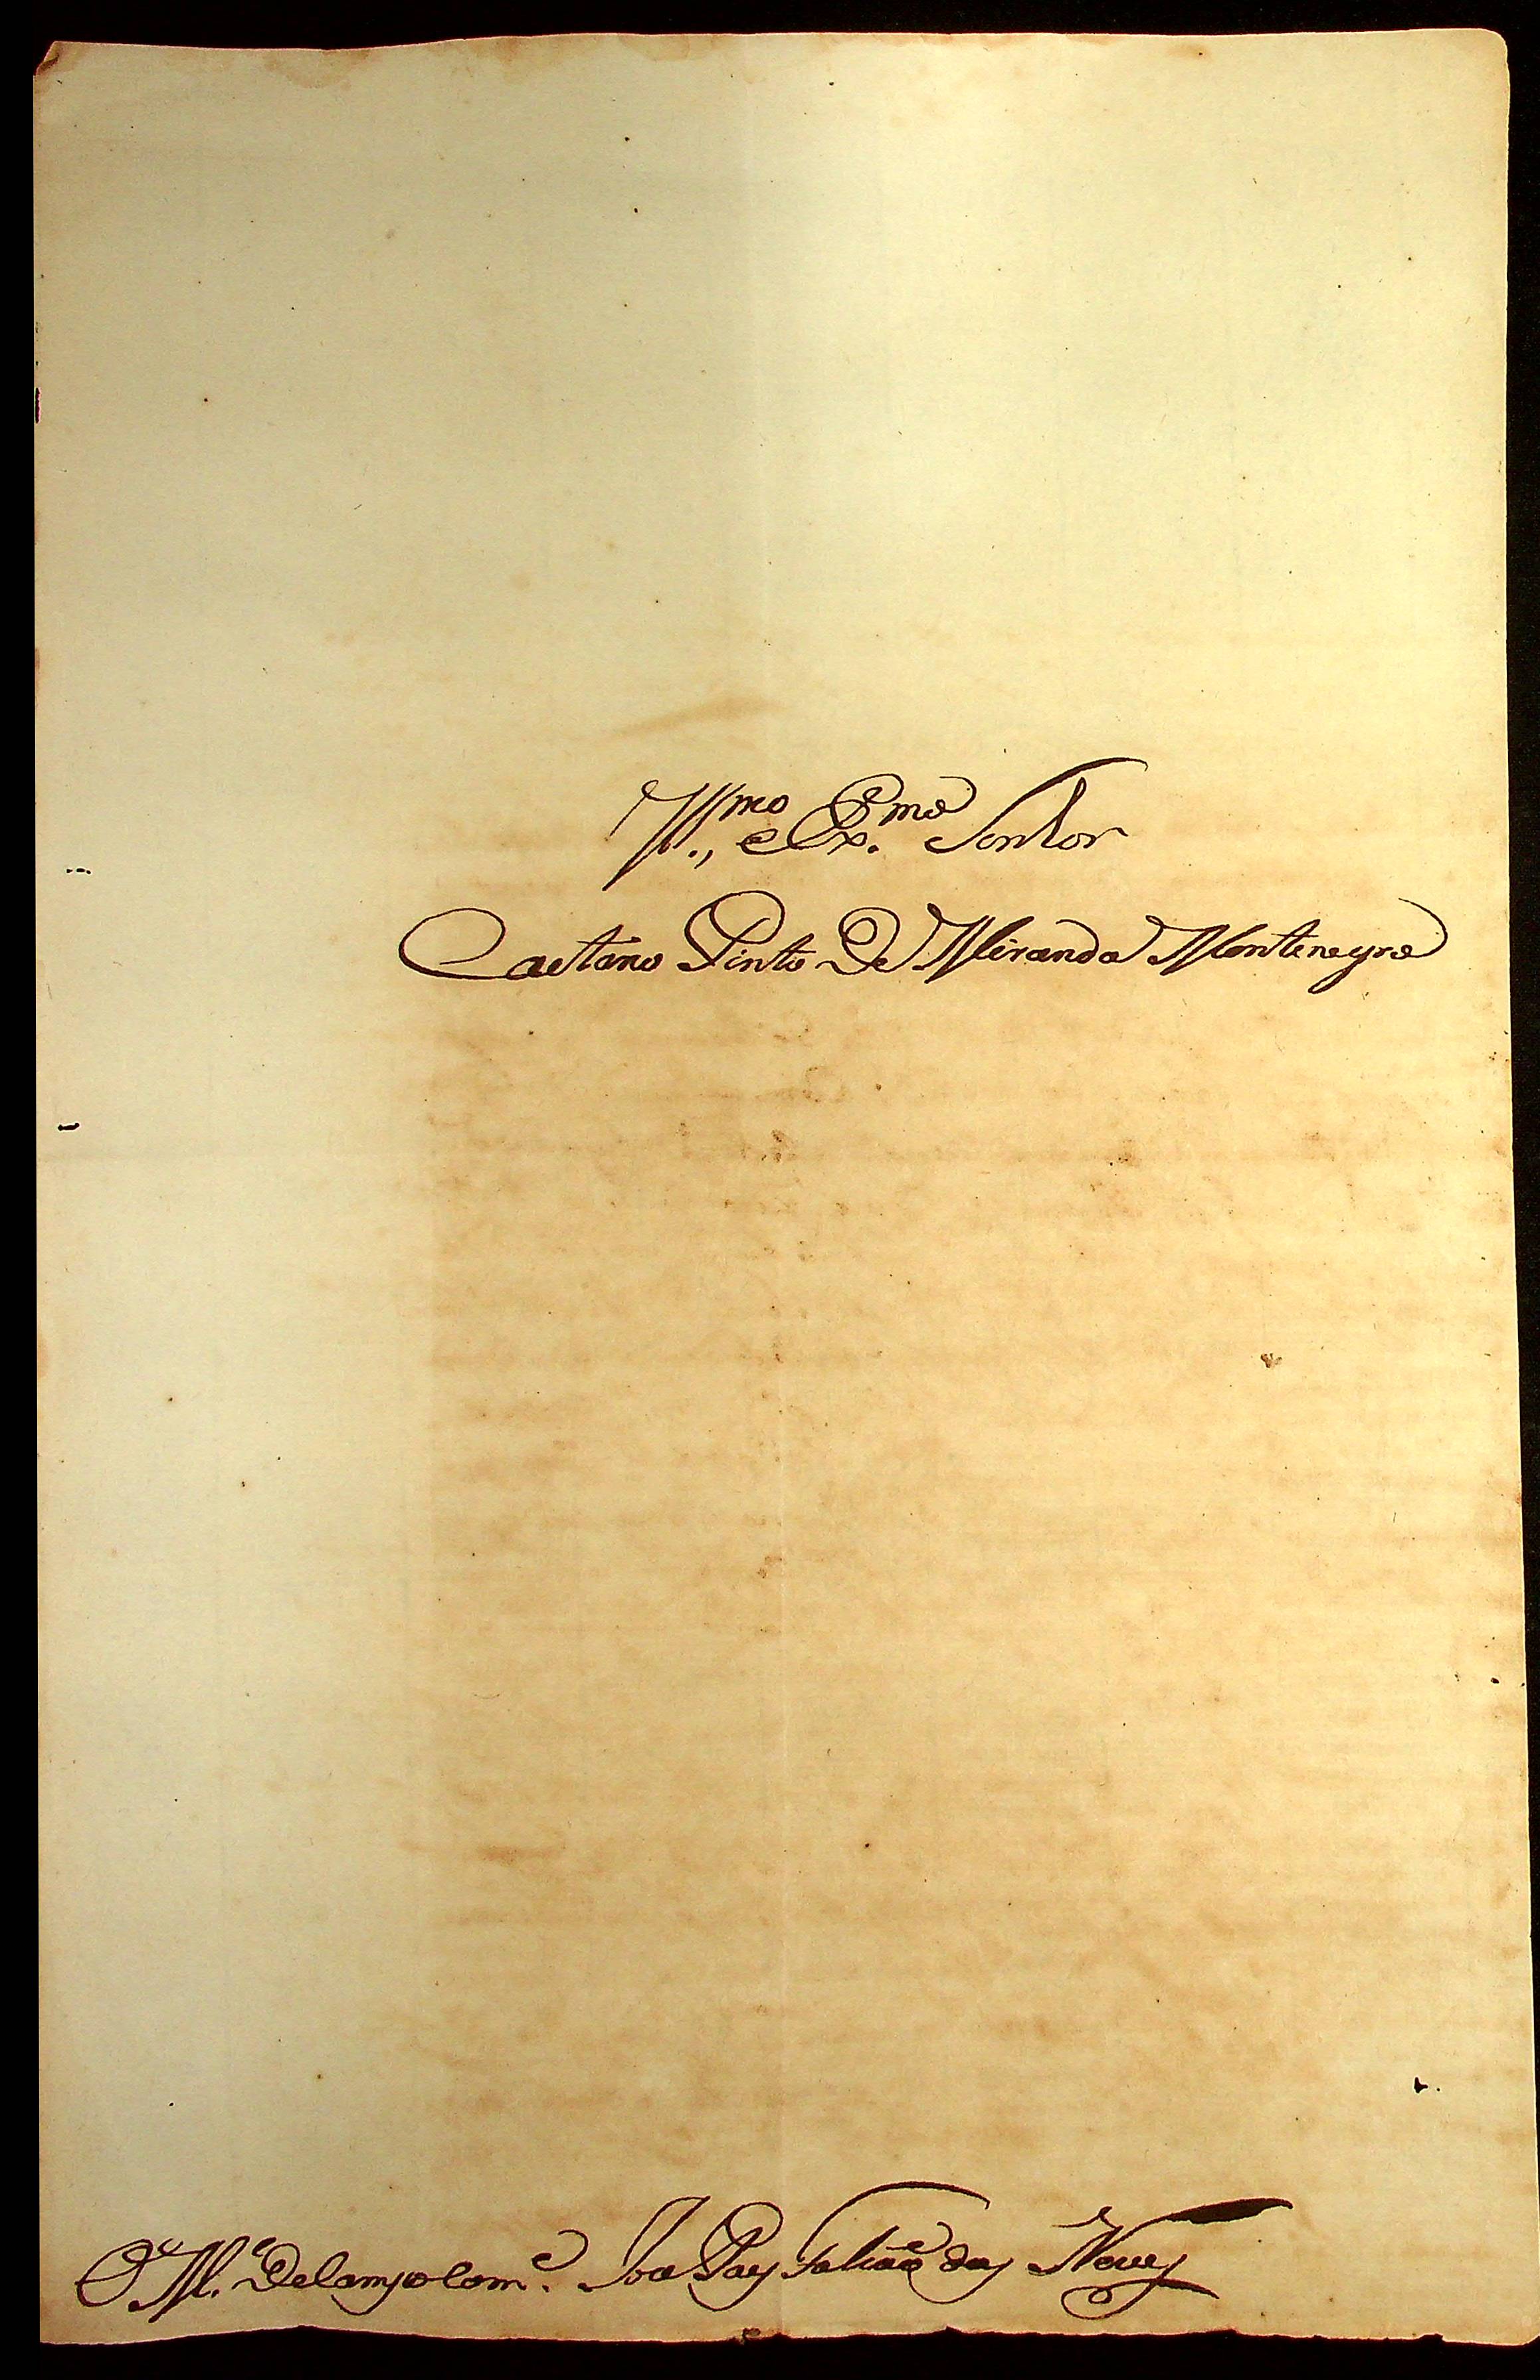 Ill.mo, e Ex.mo Senhor
Caetano Pinto De Miranda Montenegro
O M.e De Campo Com.e Joa Paes Falcaõ das Neves